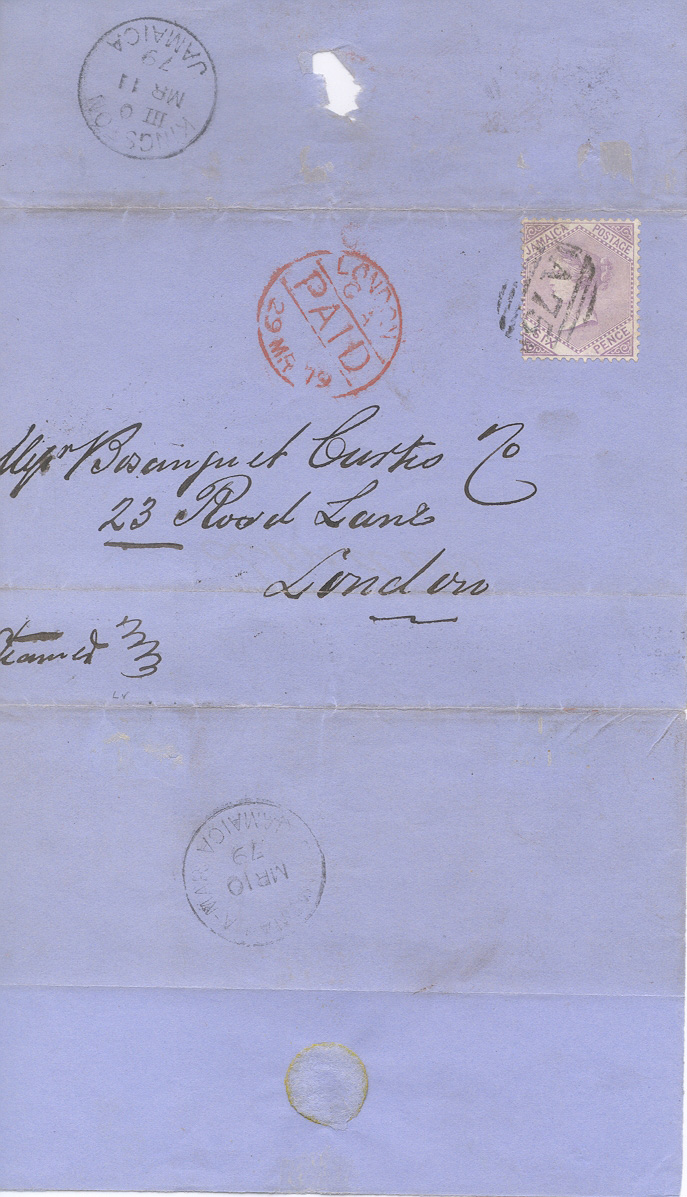 KINGSTON
III O
MR 11
79
JAMAICA
LONDON
PAID
29 MR 79
JAMAICA POSTAGE
A73
SIX PENCE
Messrs Bosanquet Curtis & Co
23 Rood Lane
London
MR 10
79
JAMAICA